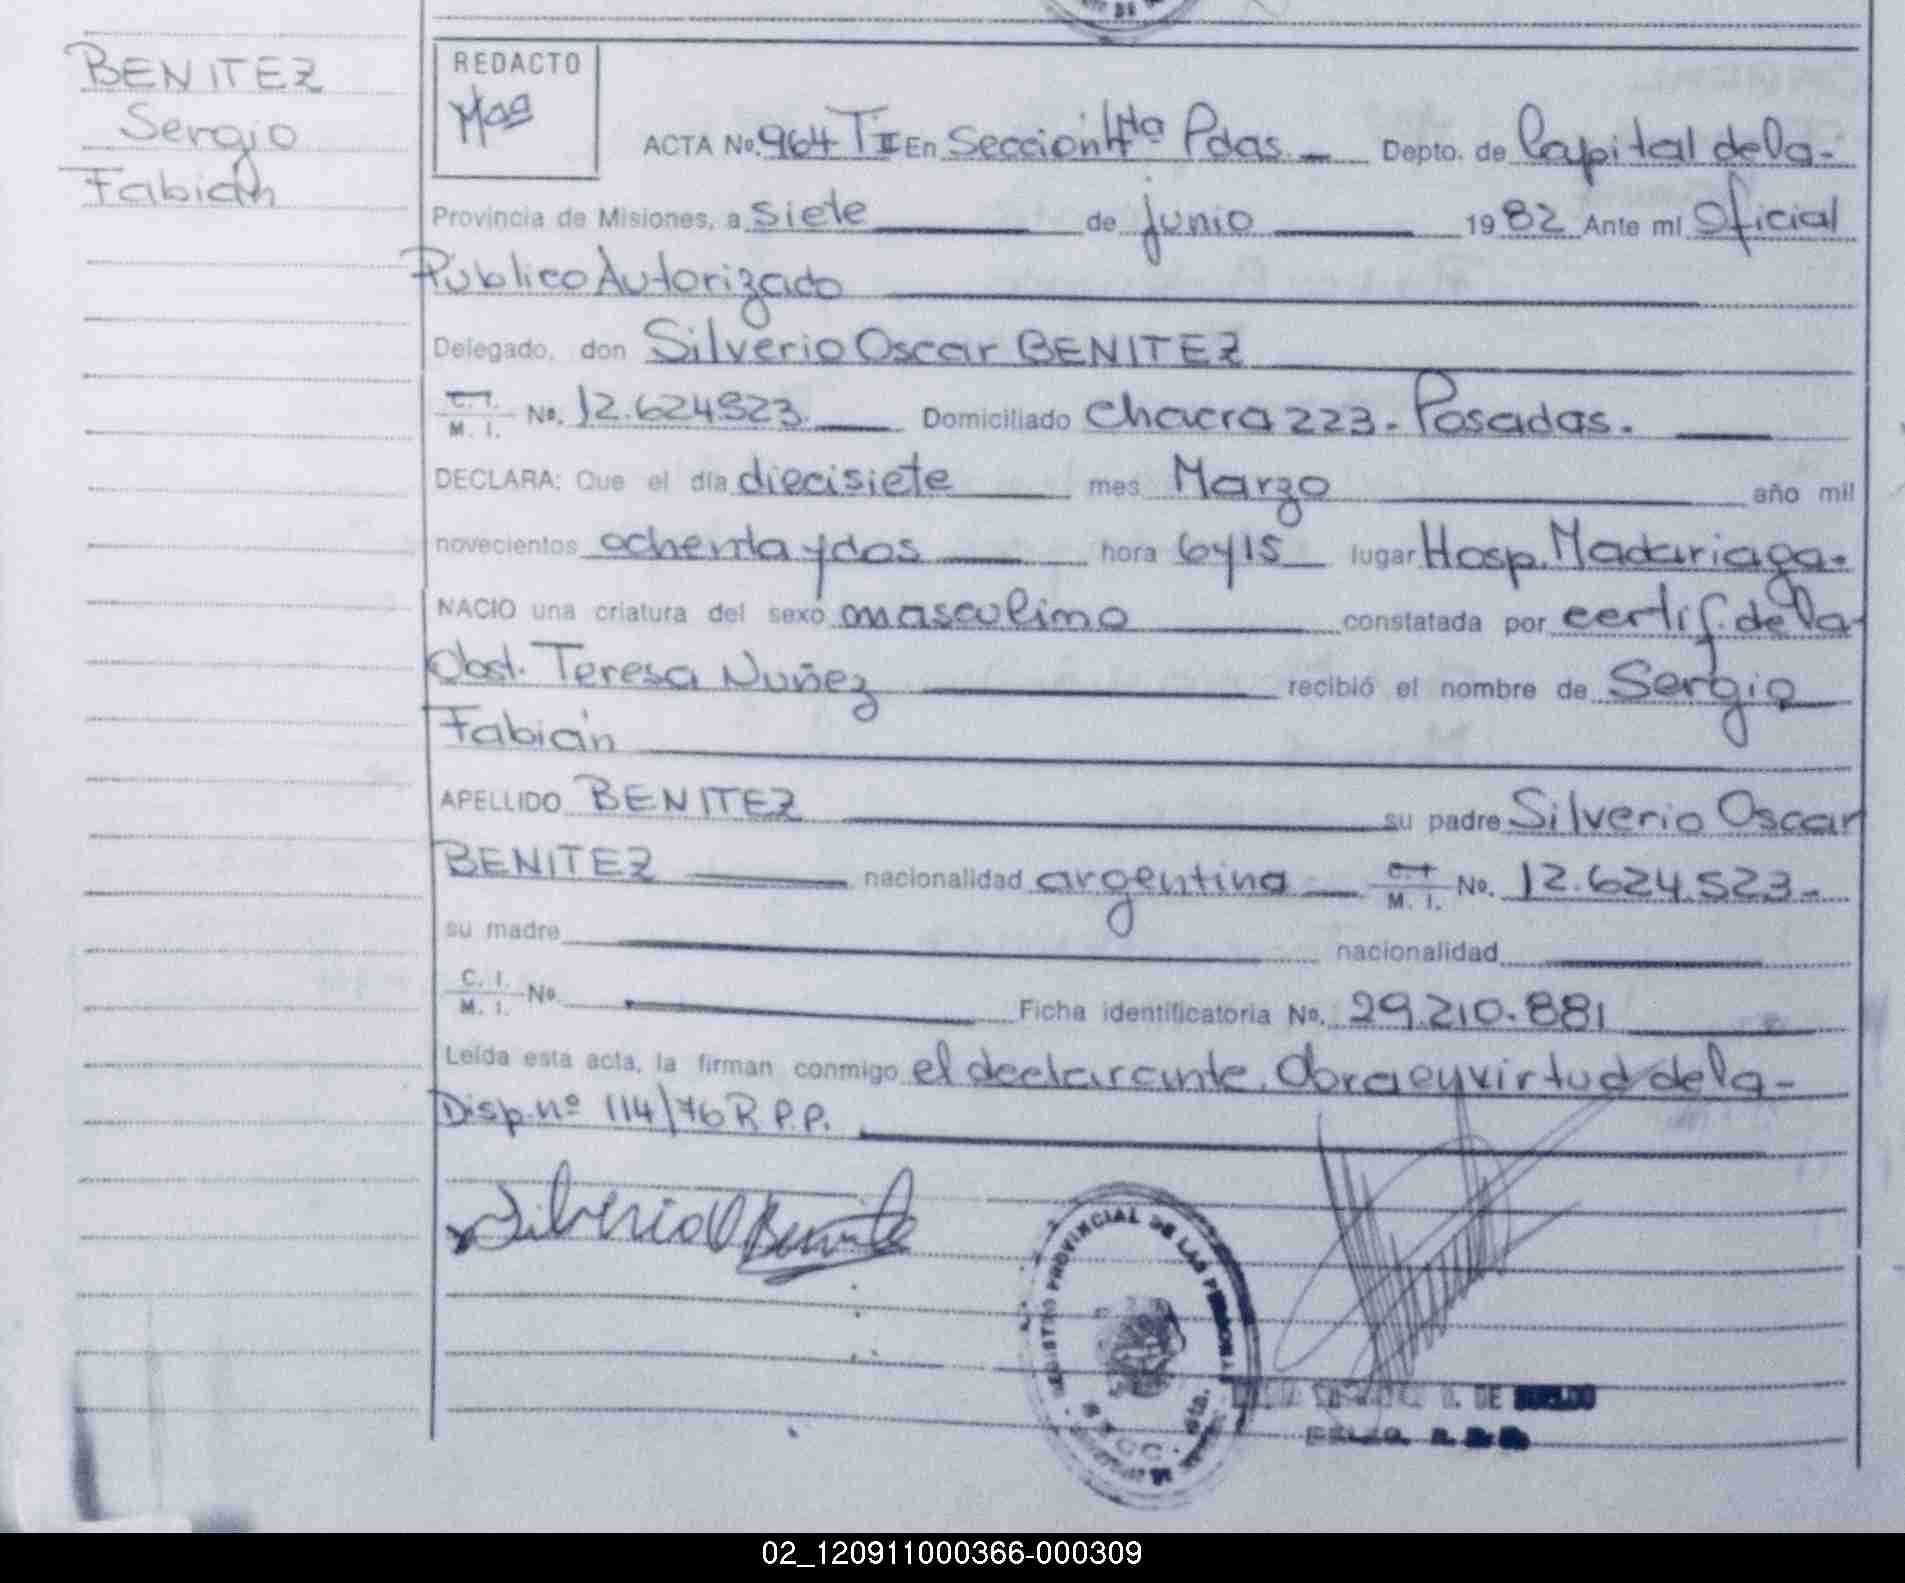 BENITEZ
Sergio
Fabián
REDACTO
ACTA No. 964 T II En Sección 4ta Pdas. Depto. de Capital de la-
Provincia de Misiones, a siete de junio 1982 Ante mí Oficial
Público Autorizado
Delegado, don Silverio Oscar BENITEZ
C. I. M. I. No. 12.624.523. Domiciliado Chacra 223.- Posadas.
DECLARA: Que el día diecisiete mes Marzo año mil
novecientos ochenta y dos hora 6y15 lugar Hosp. Madariaga.
NACIO una criatura del sexo masculino constatada por certif. de la
Obst. Teresa Nuñez recibió el nombre de Sergio
Fabián
APELLIDO BENITEZ su padre Silverio Oscar
BENITEZ nacionalidad argentina C. I. M. I. No. 12.624.523-
su madre nacionalidad
C. I. M. I. No. Ficha identificatoria No. 29.210.881
Leída esta acta, la firman conmigo el declarante. Obra en virtud de la-
Disp. nº 114/76 R.P.P.
Silverio O Benitez
REGISTRO PROVINCIAL DE LAS PERSONAS
DE
02_120911000366-000309